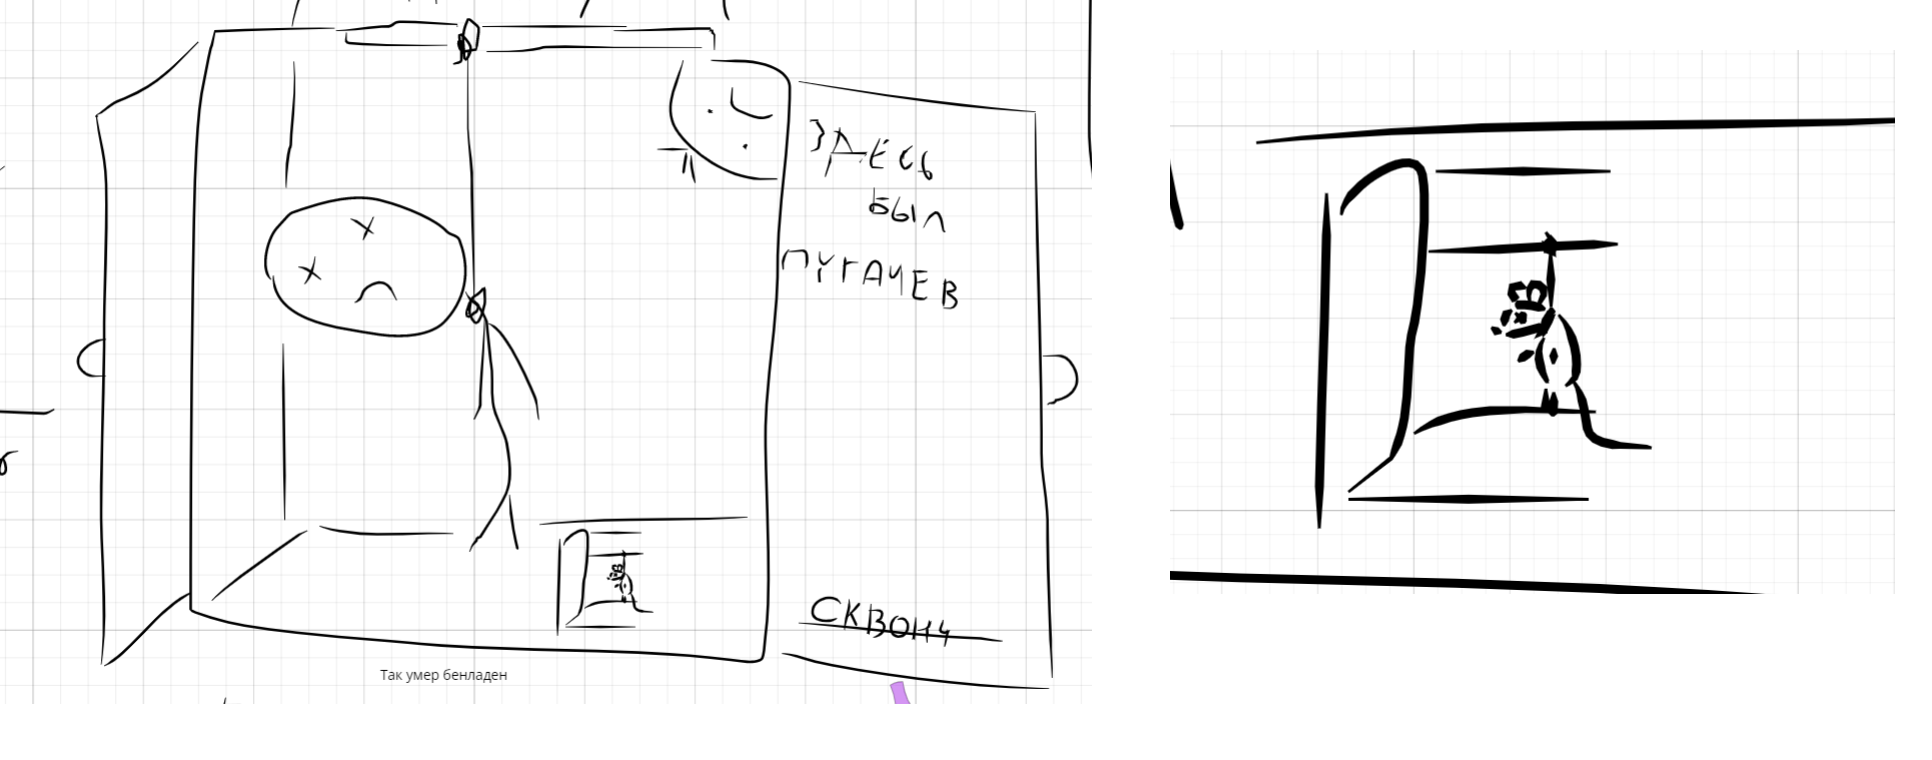 ЗДЕСЬ
БЫЛ
ПУГАЧЕВ
СКВОНЧ
Так умер бенладен